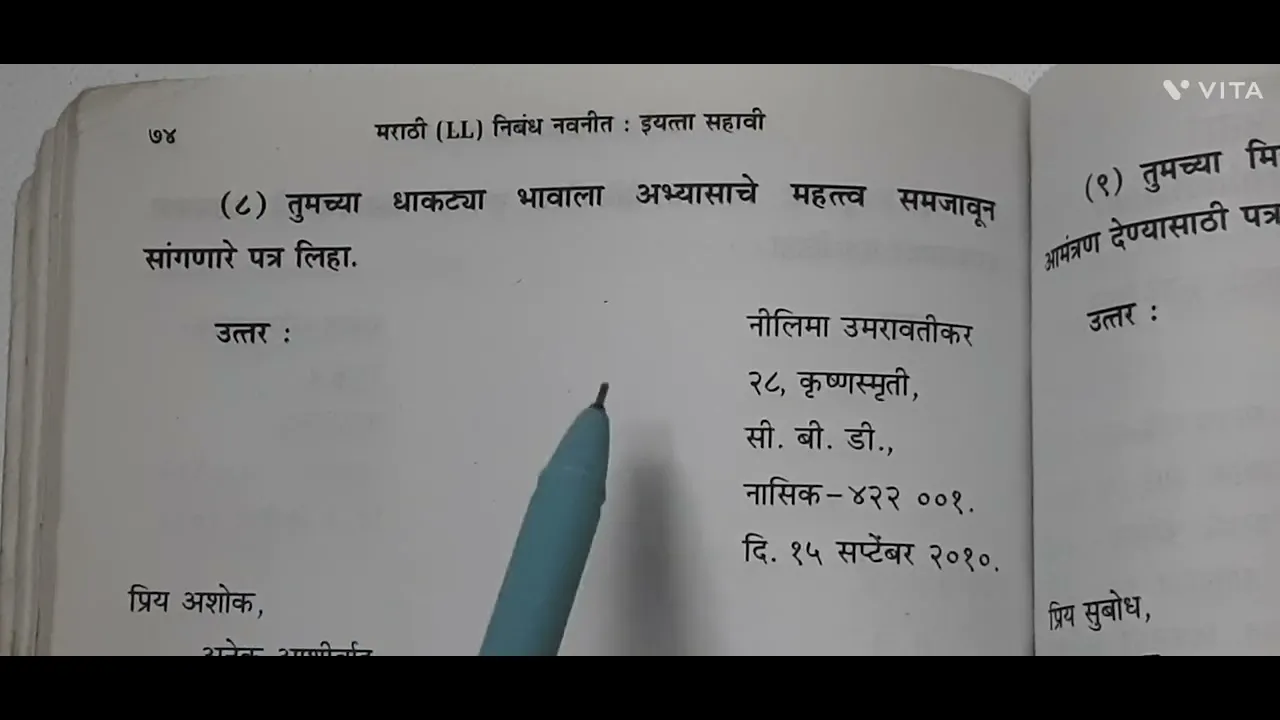 VITA
७४
मराठी (LL) निबंध नवनीत : इयत्ता सहावी
(८) तुमच्या धाकट्या भावाला अभ्यासाचे महत्त्व समजावून
सांगणारे पत्र लिहा.
उत्तर :
नीलिमा उमरावतीकर
२८, कृष्णस्मृती,
सी. बी. डी.,
नासिक-४२२ ००१.
दि. १५ सप्टेंबर २०१०.
प्रिय अशोक,
अनेक आशीर्वाद
(९) तुमच्या मि
आमंत्रण देण्यासाठी पत्र
उत्तर :
प्रिय सुबोध,